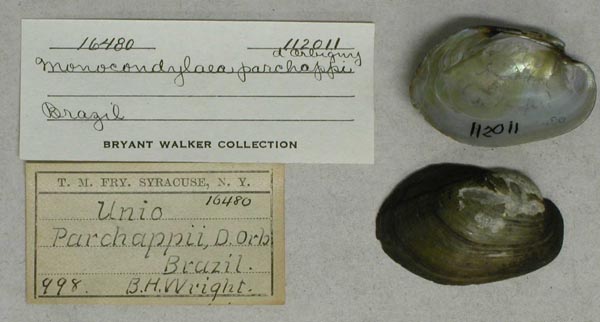 16480 112011
d'Orbigny
Monocondylaea parchappii
Brazil
BRYANT WALKER COLLECTION
T. M. FRY. SYRACUSE, N. Y.
Unio 16480
Parchappii, D. Orb
Brazil.
998. B.H. Wright.
112011